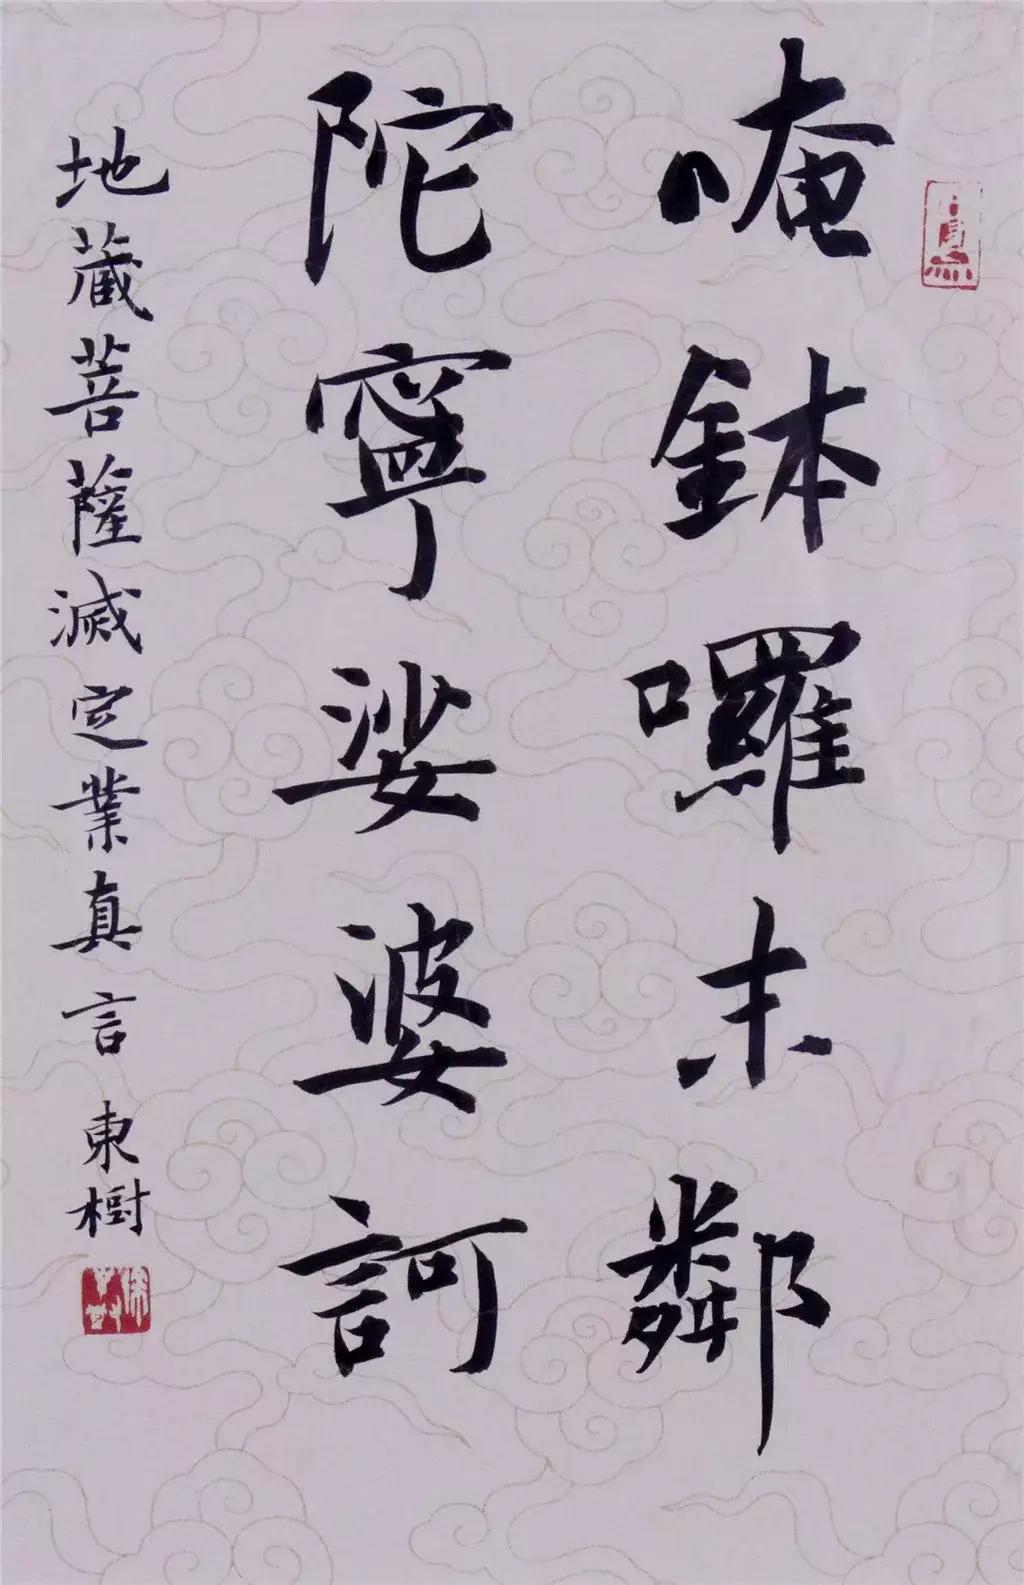 唵鉢囉末鄰
陀寧娑婆訶
地藏菩薩滅定業真言 東樹